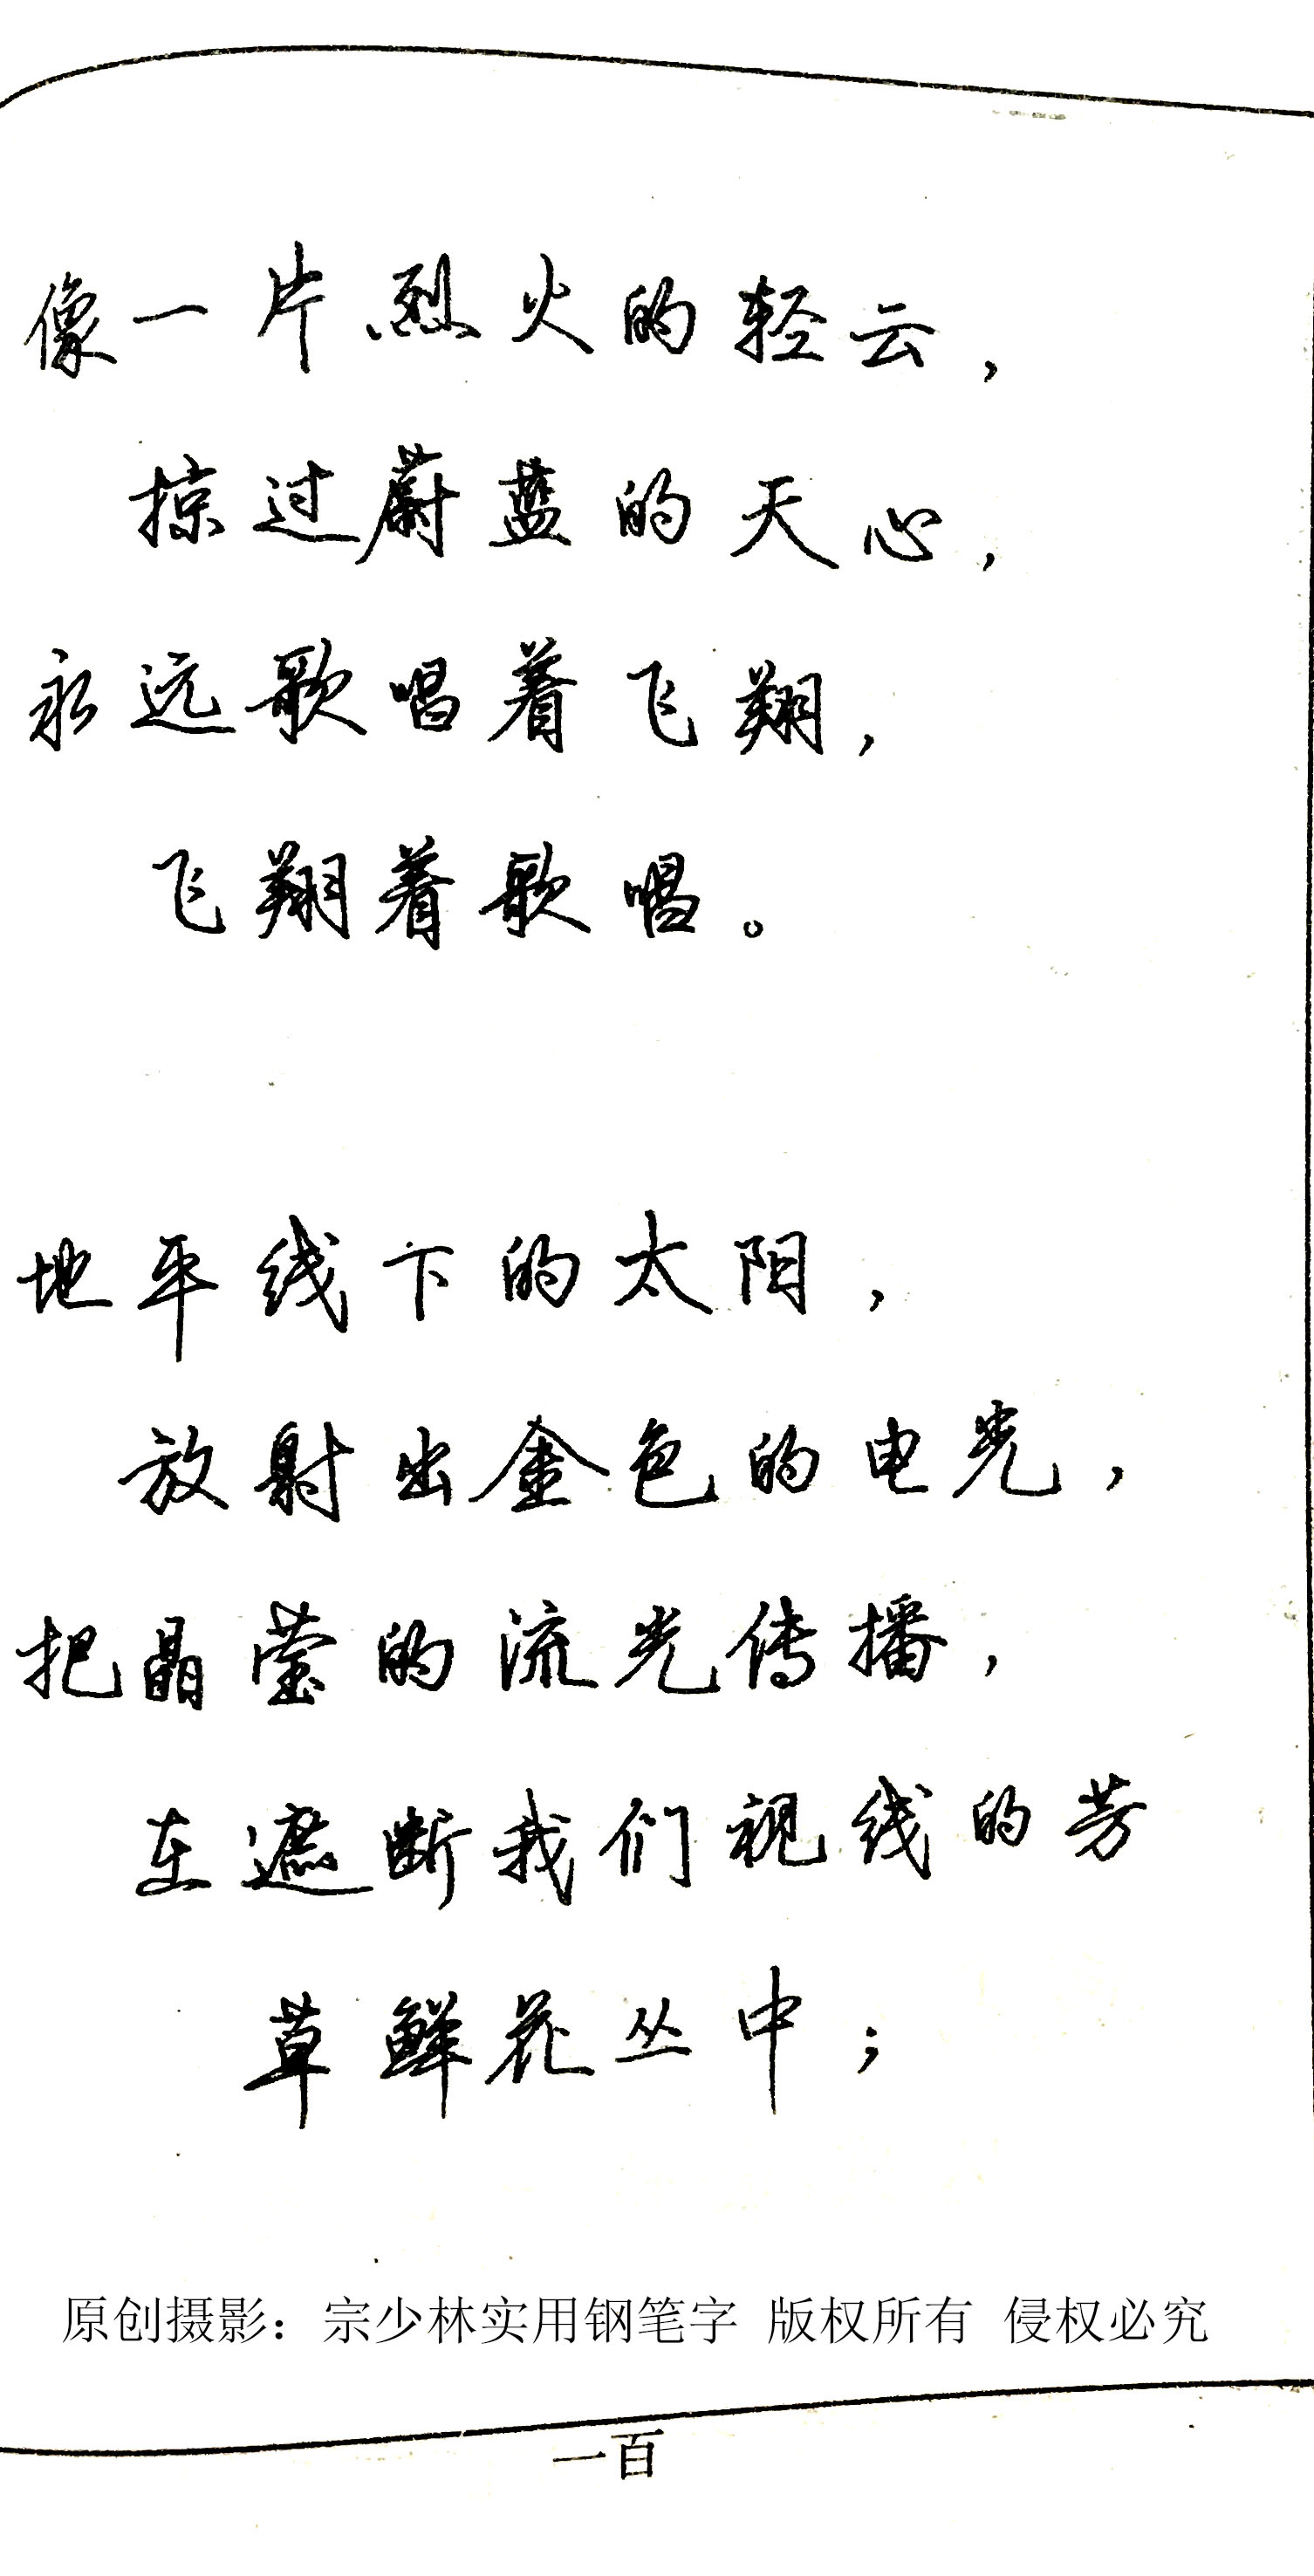 像一片烈火的轻云，
掠过蔚蓝的天心，
永远歌唱着飞翔，
飞翔着歌唱。
地平线下的太阳，
放射出金色的电光，
把晶莹的流光传播，
在遮断我们视线的芳
草鲜花丛中；
原创摄影：宗少林实用钢笔字 版权所有 侵权必究
一百